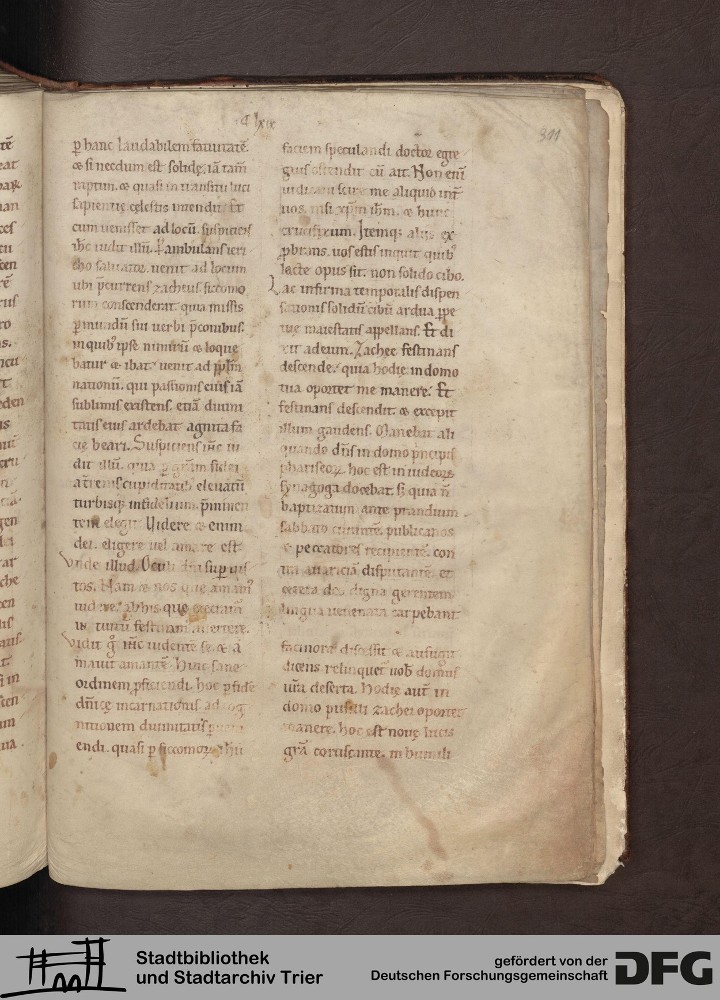 lxix
311
ꝑ hanc laudabilem fatuitatē
& si necdum est solidę. iā tam̄
raptim. & quasi in transitu luci
sapientię cęlestis intendit. Et
cum uenisset ad locū. suspiciens
ihc̄ uidit illū. Perambulans ieri
cho saluator. uenit ad locum
ubi p̄currens zacheus siccomo
rum conscenderat. quia missis
ꝑ mundū sui uerbi p̄conibus.
in quib; ipse nimirū & loque
batur & ibat. uenit ad pp̄lm̄
nationū. qui passionis eius iā
sublimis existens. etiā diuini
tatis eius ardebat agnita fa
cię beari. Suspiciens ihc̄ ui
dit illū. quia ꝑ gr̄am fidei
a terrenis cupiditatib; eleuatū
turbisq; infidelium p̄minen
tem elegit. Videre & enim
dei. eligere uel amare est
Vnde illud. Oculi dn̄i sup̄ ius
tos. Nam & nos quę amam;
uidere.
festinam; auertere.
Vidit g̊ ihc̄ uidentē se. & a
mauit amantē. Hunc sane
ordinem p̄ficiendi. hoc ꝑ fidē
dn̄icę incarnationis. ad cog
nitionem diuinitatis
endi. quasi ꝑ siccomorū
faciem speculandi doctor egre
gius ostendit cū ait. Non enī
iudicaui scire me aliquid int̄
uos. nisi xp̄m ihm̄. & hunc
crucifixum. Itemq; alios ex
p̄brans. uos estis inquit quib;
lacte opus sit. non solido cibo.
Lac infirma temporalis dispen
sationis solidū cibū ardua ꝑpe
tuę maiestatis appellans. Et di
xit ad eum. Zachee festinans
descende. quia hodie in domo
tua oportet me manere. Et
festinans descendit. & excepit
illum gaudens. Manebat ali
quando dn̄s in domo p̄ncipis
phariseoꝝ hoc est in iudeoꝝ
synagoga docebat. sꝫ quia n̄
baptizatum ante prandium
sabbato curantē. publicanos
& peccatores recipientē. con
tra auariciā disputantē. et
cetera dō digna gerentem
lingua uenenata carpebant
facinora discessit & aufugit
dicens relinquet̄ uob̄ domus
ur̄a deserta. Hodię aut̄ in
domo pusilli zachei oportet
manere. hoc est nouę lucis
gr̄a coruscante. in humili
Stadtbibliothek
und Stadtarchiv Trier
gefördert von der
Deutschen Forschungsgemeinschaft
DFG